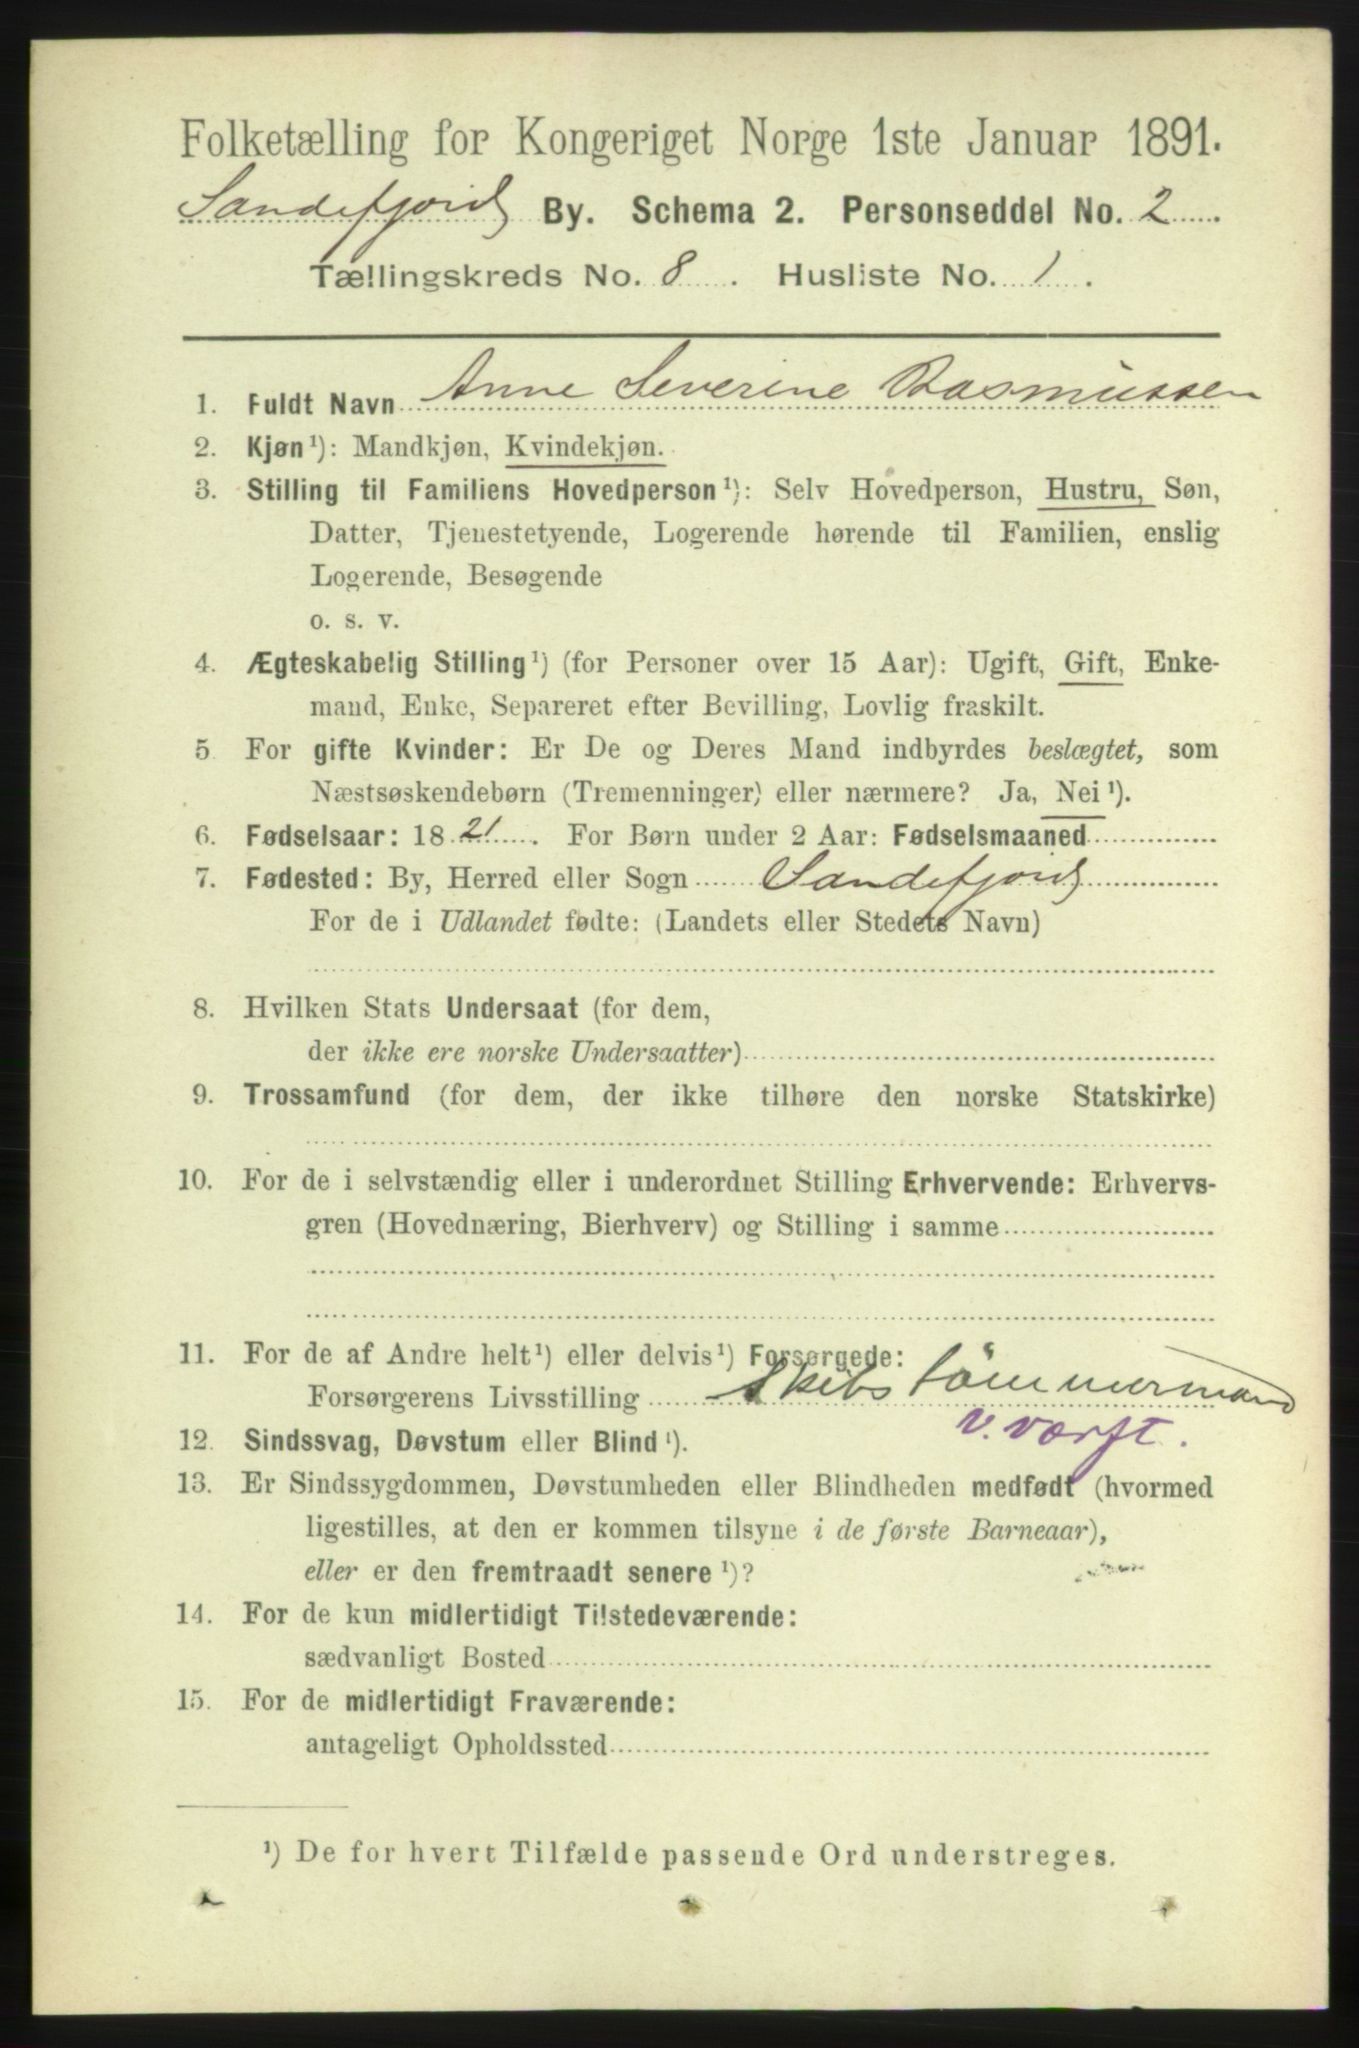 Folketælling for Kongeriget Norge 1ste Januar 1891.
Sandefjord By. Schema 2. Personseddel No. 2
Tællingskreds No. 8. Husliste No. 1.
1. Fuldt Navn Anne Severine Rasmussen
2. Kjøn¹): Mandkjøn, Kvindekjøn.
3. Stilling til Familiens Hovedperson¹): Selv Hovedperson, Hustru, Søn,
Datter, Tjenestetyende, Logerende hørende til Familien, enslig
Logerende, Besøgende
o. s. v.
4. Ægteskabelig Stilling¹) (for Personer over 15 Aar): Ugift, Gift, Enke-
mand, Enke, Separeret efter Bevilling, Lovlig fraskilt.
5. For gifte Kvinder: Er De og Deres Mand indbyrdes beslægtet, som
Næstsøskendebørn (Tremenninger) eller nærmere? Ja, Nei¹).
6. Fødselsaar: 1821. For Børn under 2 Aar: Fødselsmaaned
7. Fødested: By, Herred eller Sogn Sandefjord
For de i Udlandet fødte: (Landets eller Stedets Navn)
8. Hvilken Stats Undersaat (for dem,
der ikke ere norske Undersaatter)
9. Trossamfund (for dem, der ikke tilhøre den norske Statskirke)
10. For de i selvstændig eller i underordnet Stilling Erhvervende: Erhvervs-
gren (Hovednæring, Bierhverv) og Stilling i samme
11. For de af Andre helt¹) eller delvis¹) Forsørgede:
Forsørgerens Livsstilling Skibstömmermand
v. værft.
12. Sindssvag, Døvstum eller Blind¹).
13. Er Sindssygdommen, Døvstumheden eller Blindheden medfødt (hvormed
ligestilles, at den er kommen tilsyne i de første Barneaar),
eller er den fremtraadt senere¹)?
14. For de kun midlertidigt Tilstedeværende:
sædvanligt Bosted
15. For de midlertidigt Fraværende:
antageligt Opholdssted
¹) De for hvert Tilfælde passende Ord understreges.